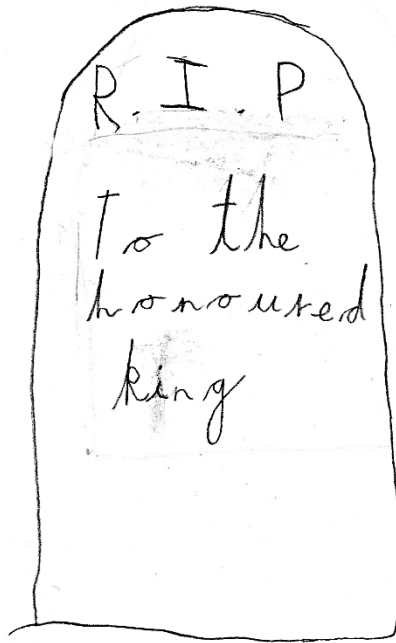 R.I.P
To the
honoured
king